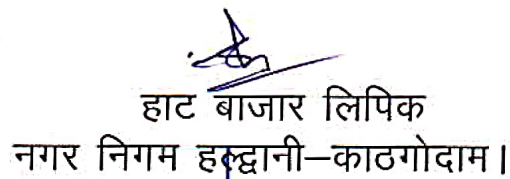 हाट बाजार लिपिक
नगर निगम हल्द्वानी–काठगोदाम।